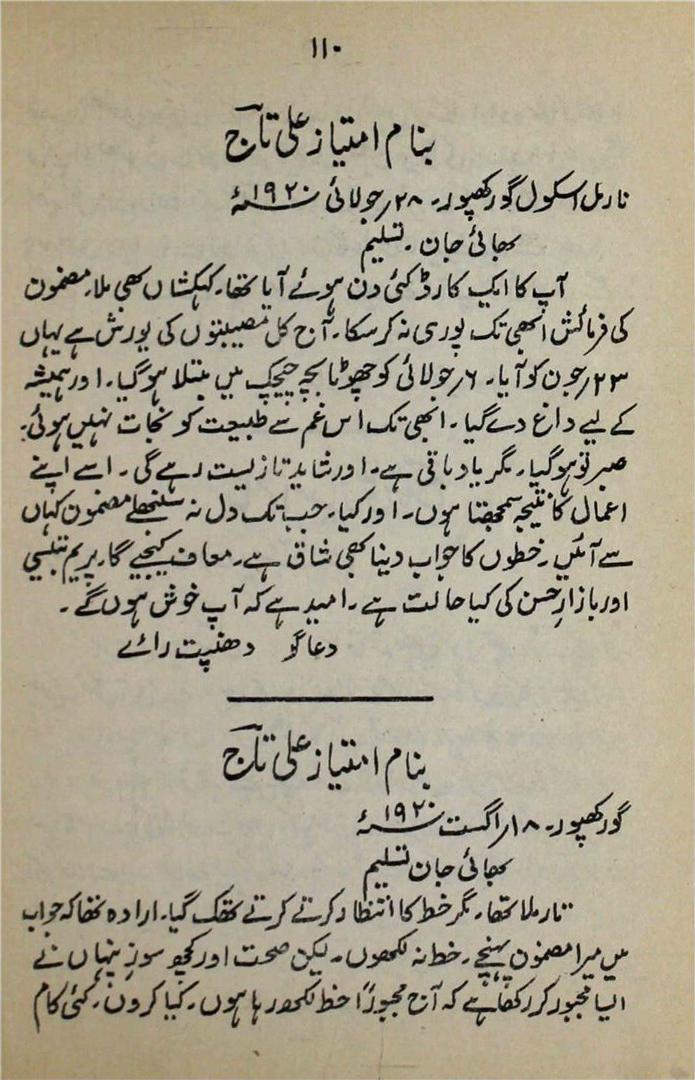 ۱۱۰
بنام امتیاز علی تاج
نارمل اسکول گورکھپور۔ ۲۸؍جولائی ۱۹۲۰ء
بھائی جان۔ تسلیم
آپ کا ایک کارڈ کئی دن ہوئے آیا تھا۔ کہکشاں بھی ملا۔ مضمون
کی فرمائش ابھی تک پوری نہ کر سکا۔ آج کل مصیبتوں کی یورش ہے یہاں
۲۳؍جون کو آیا۔ ۶؍جولائی کو چھوٹا بچہ چیچک میں مبتلا ہو گیا۔ اور ہمیشہ
کے لیے داغ دے گیا۔ ابھی تک اس غم سے طبیعت کو نجات نہیں ہوئی۔
صبر تو ہو گیا۔ مگر یاد باقی ہے۔ اور شاید تازیست رہے گی۔ اسے اپنے
اعمال کا نتیجہ سمجھتا ہوں۔ اور کیا۔ جب تک دل نہ سنبھلے مضمون کہاں
سے آئیں۔ خطوں کا جواب دینا بھی شاق ہے۔ معاف کیجیے گا۔ پریم بتیسی
اور بازارِ حسن کی کیا حالت ہے۔ امید ہے کہ آپ خوش ہوں گے۔
دعاگو دھنپت رائے
بنام امتیاز علی تاج
گورکھپور۔ ۱۸؍اگست ۱۹۲۰ء
بھائی جان تسلیم
تار ملا تھا۔ مگر خط کا انتظار کرتے کرتے تھک گیا۔ ارادہ تھا کہ جواب
میں میرا مضمون پہنچے۔ خط نہ لکھوں۔ لیکن صحت اور کچھ سوزِ پنہاں نے
ایسا مجبور کر رکھا ہے کہ آج مجبوراً خط لکھ رہا ہوں۔ کیا کروں۔ کئی کام